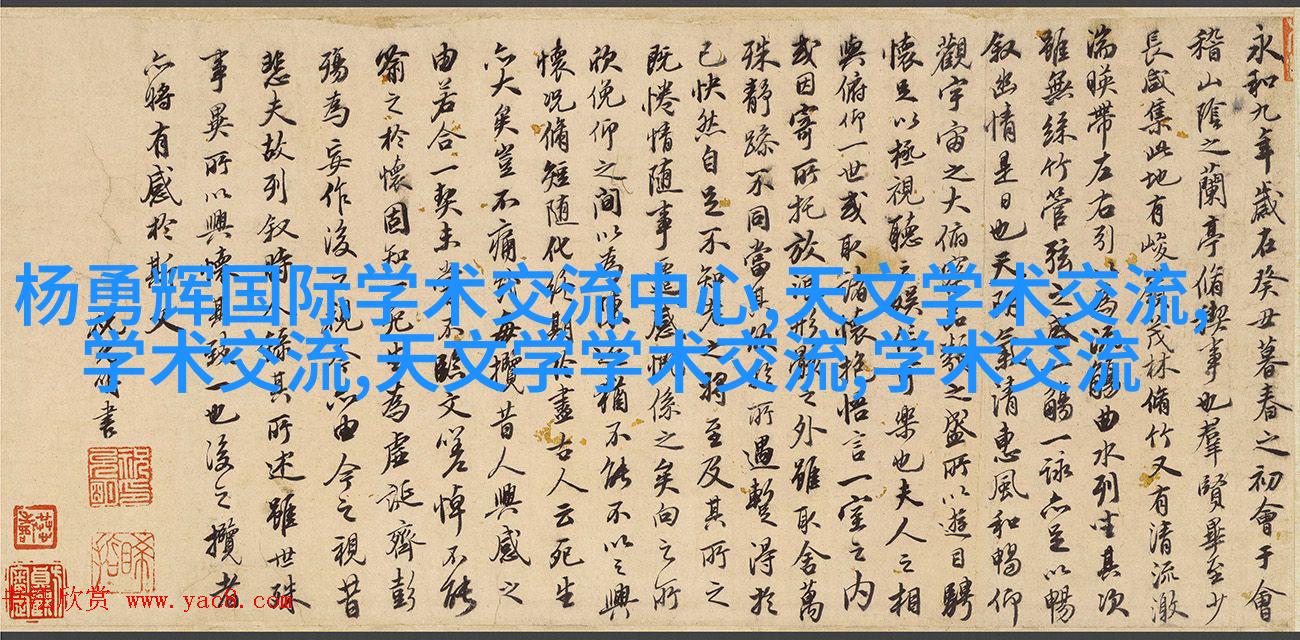 杨勇辉国际学术交流中心,天文学术交流,
学术交流,天文学学术交流,学术交流
永和九年歲在癸丑暮春之初會于會
稽山陰之蘭亭脩禊事也羣賢畢至少
長咸集此地有峻茂林脩竹又有清流激
湍暎帶左右引為流觴曲水列坐其次
雖無絲竹管弦之盛一觴一詠亦足以暢
叙幽情是日也天朗氣清惠風和暢仰
觀宇宙之大俯察品類之盛所以遊目騁
懷足以極視聽之娛信可樂也夫人之相
與俯仰一世或取諸懷抱悟言一室之內
或因寄所托放浪形骸之外雖取舍萬
殊靜躁不同當其欣於所遇暫得於
已快然自足不知老之將至及其所之
既惓情随事遷感慨係之矣向之所
欣俛仰之間以為陳迹猶不能不以之興
懷况脩短随化終期於盡古人云死生
亦大矣豈不痛哉每攬昔人興感之
由若合一契未嘗不臨文嗟悼不能
喻之於懷固知一死生為虛誕齊彭
殤為妄作後之視今亦由今之視昔
悲夫故列叙時人錄其所述雖世殊
事異所以興懷其致一也後之攬者
亦將有感於斯文
祝允明書
书法欣赏 www.yac8.com